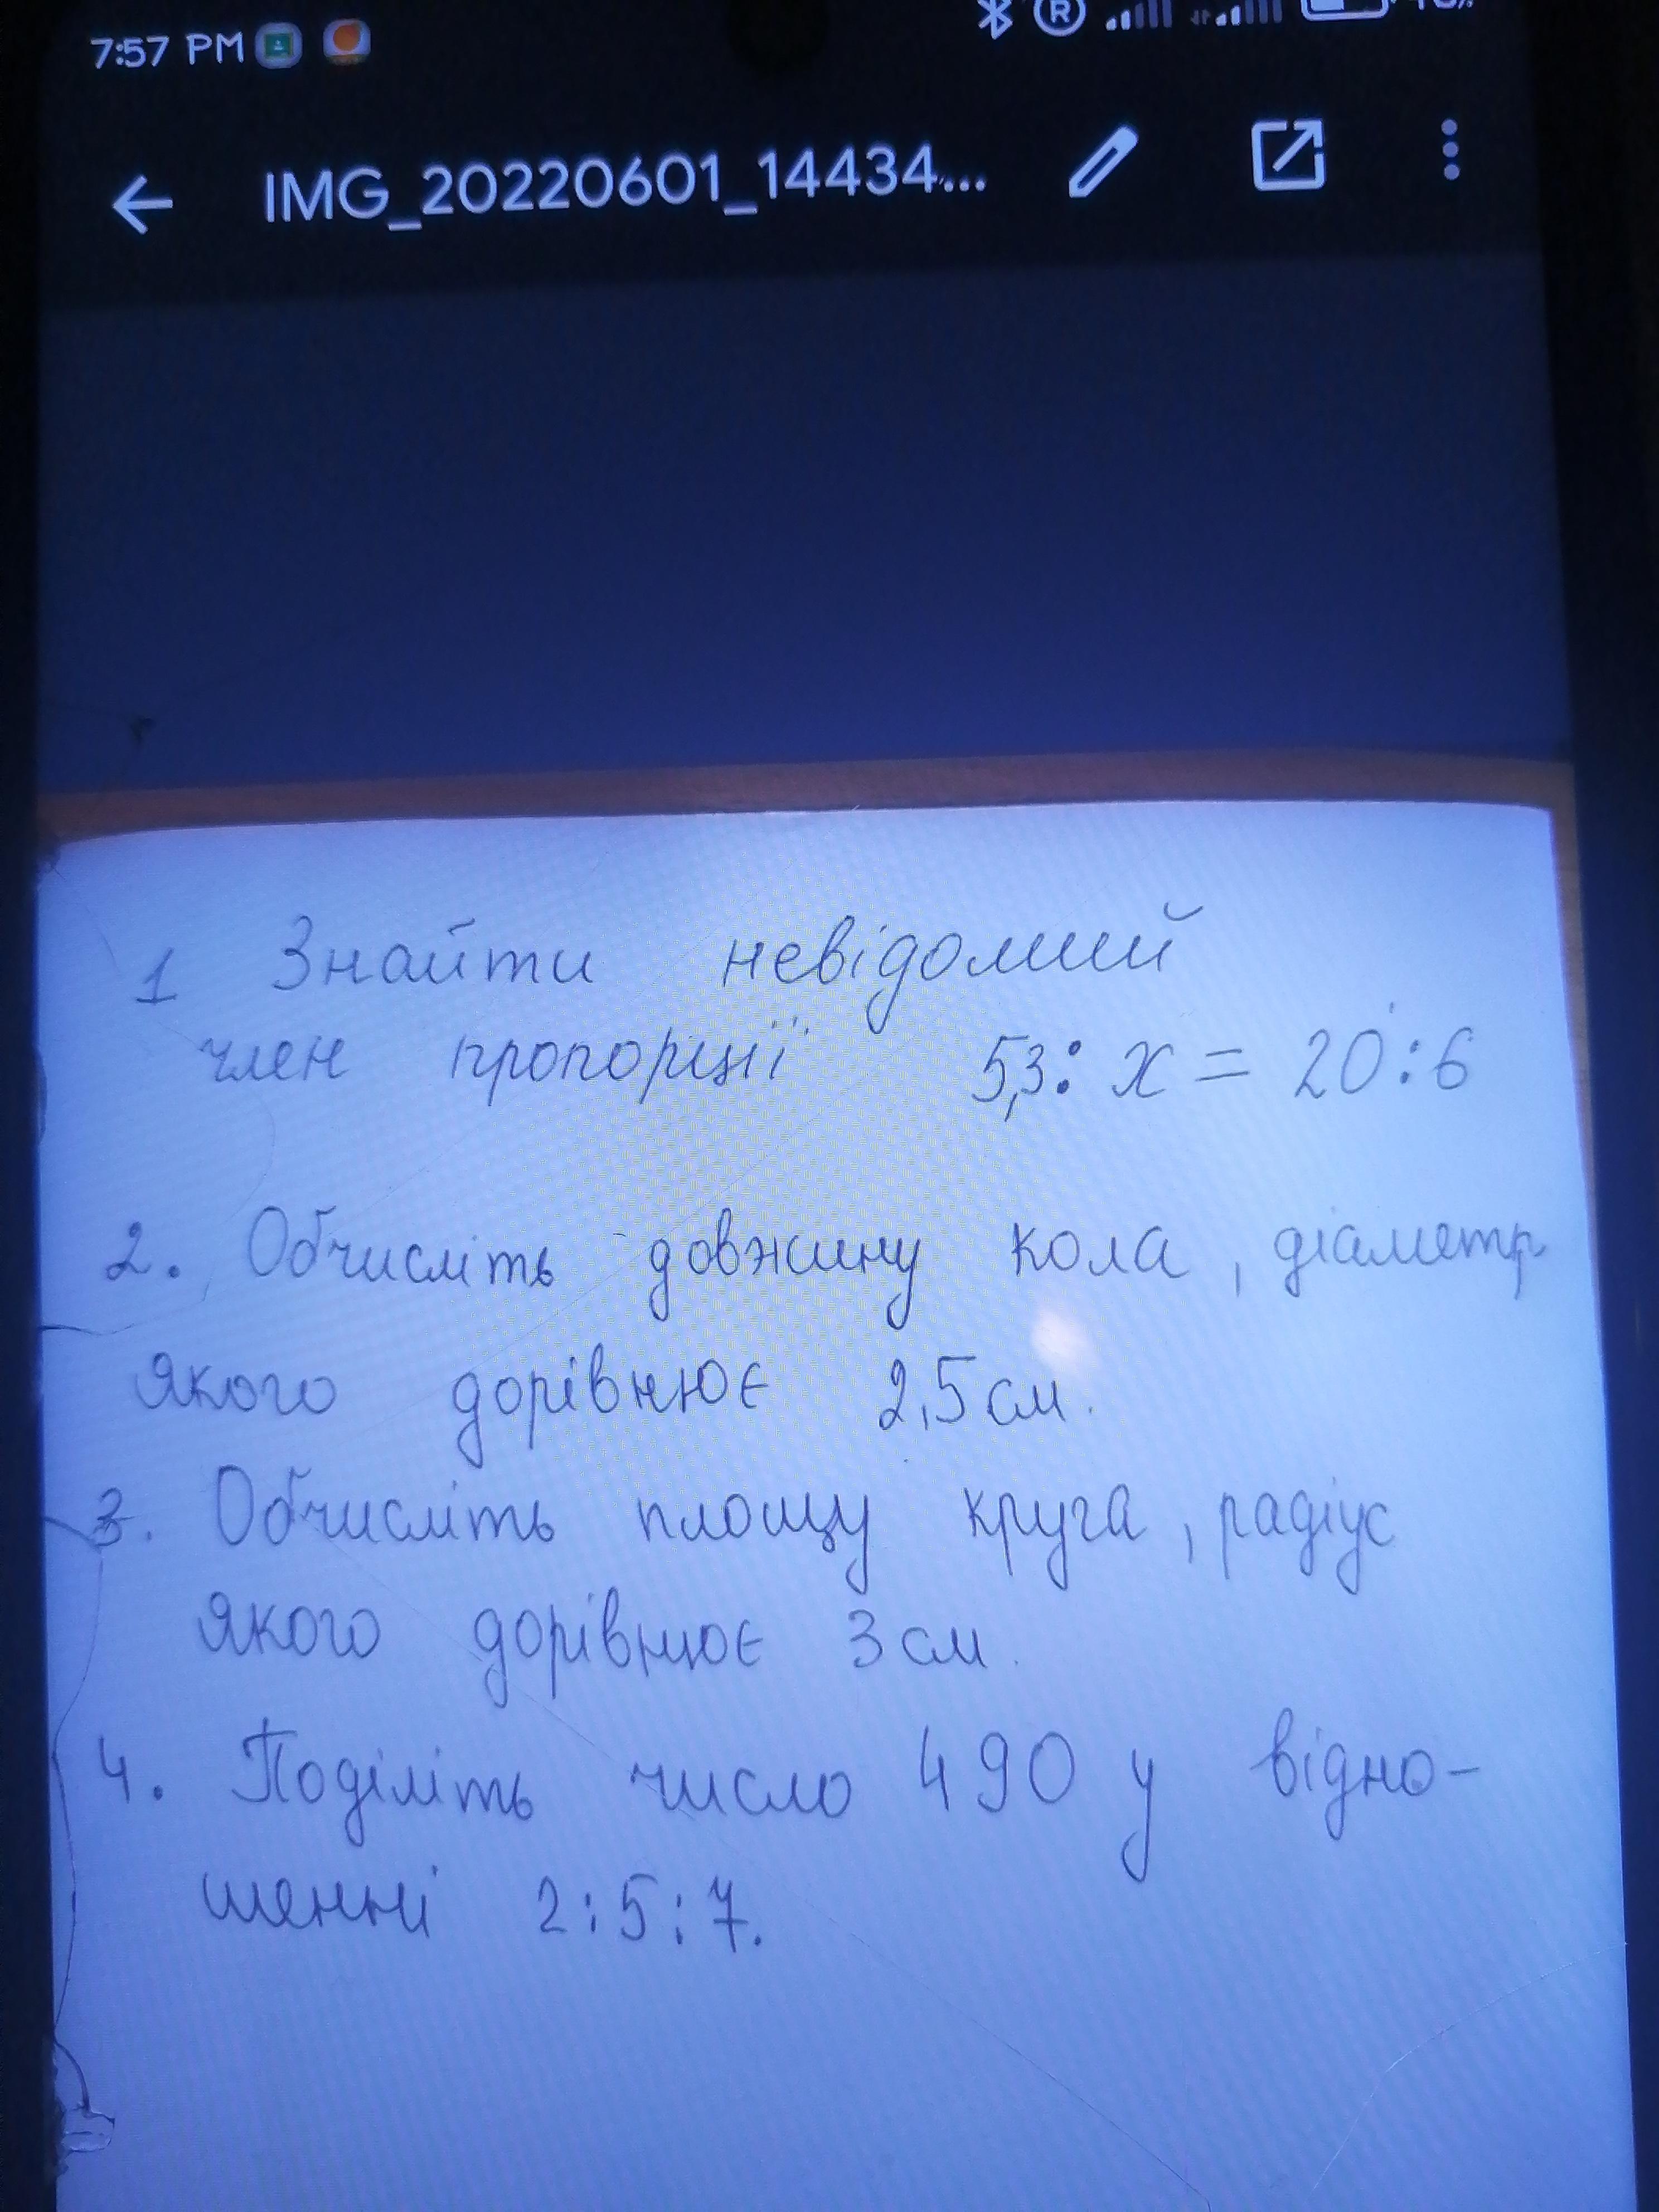 7:57 PM
IMG_20220601_14434...
1 Знайти невідомий
член пропорції 5,3 : x = 20 : 6
2. Обчисліть довжину кола, діаметр
якого дорівнює 2,5 см.
3. Обчисліть площу круга, радіус
якого дорівнює 3 см.
4. Поділіть число 490 у відно-
шенні 2 : 5 : 7.